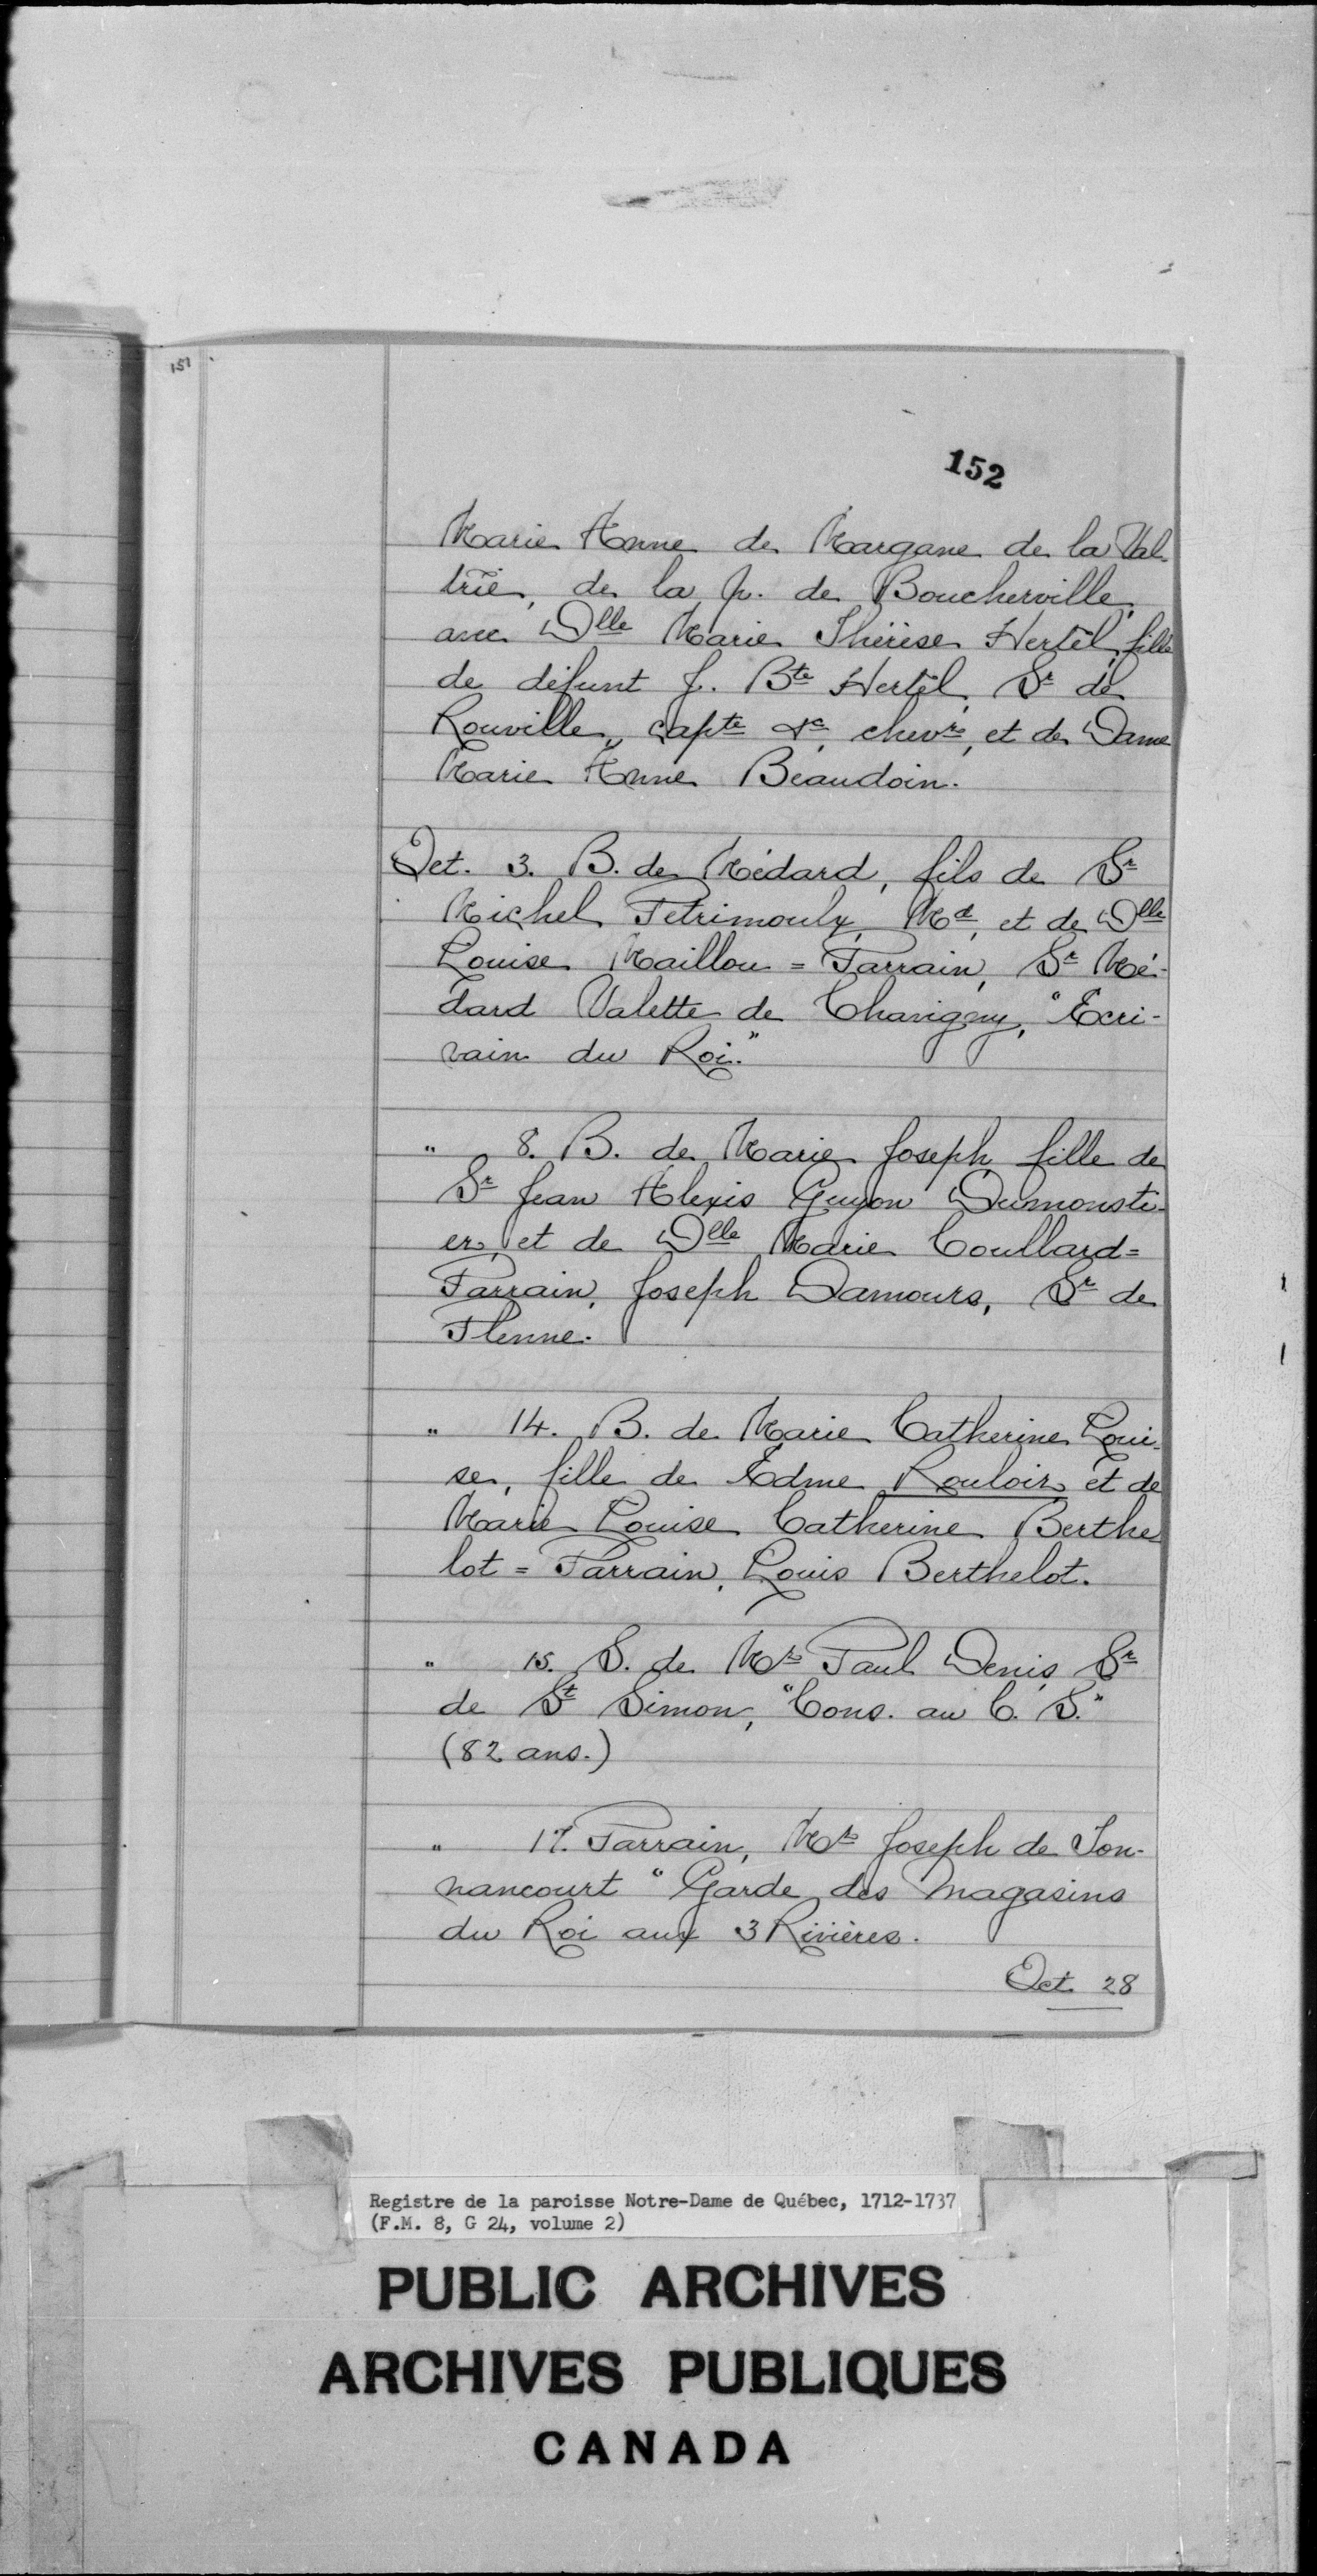 151
152
Marie Anne de Margane de la Val-
trie, de la p. de Boucherville,
avec Dlle Marie Thérèse Hertel, fille
de défunt J. Bte Hertel, Sr de
Rouville, capte &c, chevr, et de Dame
Marie Anne Beaudoin.
Oct. 3. B. de Médard, fils de Sr
Michel Petrimoulx, Md, et de Dlle
Louise Maillou = Parrain, Sr Mé-
dard Valette de Chavigny, "Ecri-
vain du Roi."
" 8. B. de Marie Joseph, fille de
Sr Jean Alexis Guyon Dumonsti-
er, et de Dlle Marie Coullard=
Parrain, Joseph Damours, Sr de
Plenne.
" 14. B. de Marie Catherine Loui-
se, fille de Edme Rouloir et de
Marie Louise Catherine Berthe
lot = Parrain, Louis Berthelot.
" 15. S. de Mr Paul Denis, Sr
de St Simon, "Cons. au C. S."
(82 ans.)
" 17. Parrain, Mr Joseph de Ton-
nancourt "Garde des magasins
du Roi aux 3 Rivières.
Oct. 28
Registre de la paroisse Notre-Dame de Québec, 1712-1737
(F.M. 8, G 24, volume 2)
PUBLIC ARCHIVES
ARCHIVES PUBLIQUES
CANADA